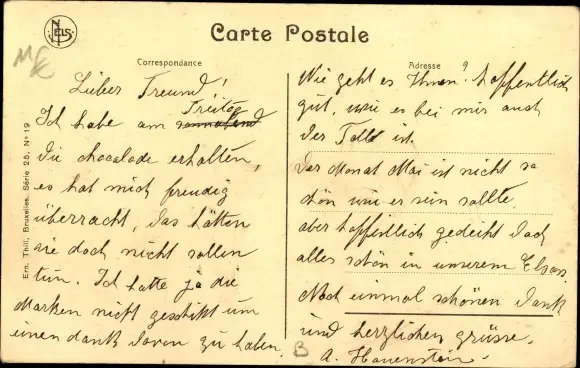 NELS
Carte Postale
Correspondance
Adresse
Ern. Thill, Bruxelles, Série 25, No 19
Lieber Freund!
Freitag
Ich habe am sonnabend
die chocolade erhalten,
es hat mich freudig
überracht, das hätten
sie doch nicht sollen
tun. Ich hatte ja die
Marken nicht geschikt um
einen dank davon zu haben.
Wie geht es Ihnen? hoffentlich
gut, wie es bei mir auch
der Fall ist.
Der Monat Mai ist nicht so
schön wie er sein sollte,
aber hoffentlich gedeiht doch
alles schön in unserem Elsass.
Noch einmal schönen Dank
und herzlichen grüsse.
A. Hauenstein.
B